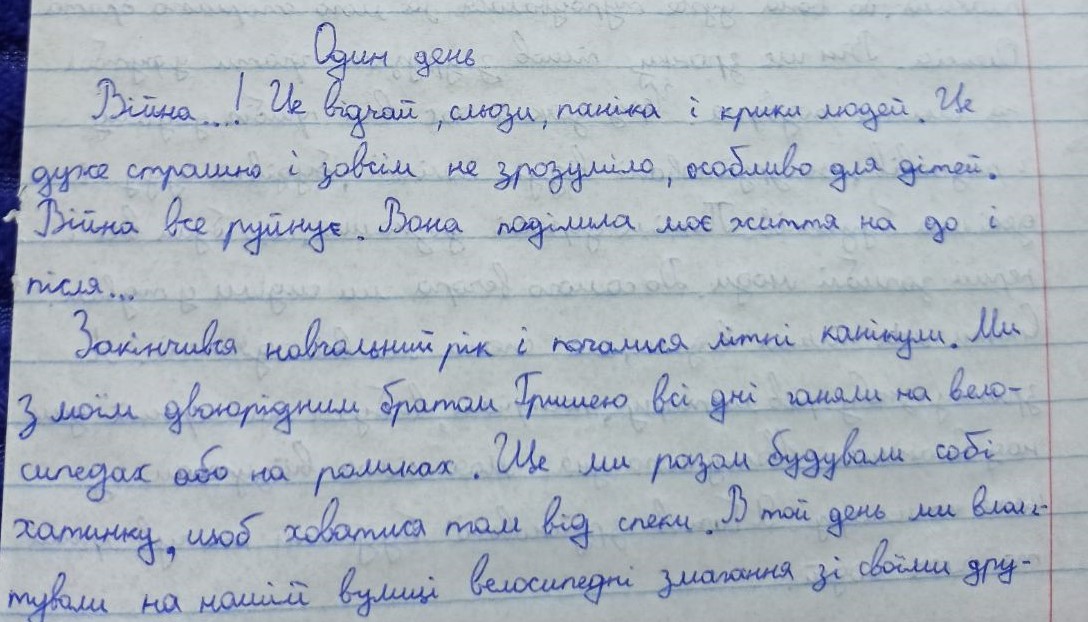 Один день
Війна...! Це відчай, сльози, паніка і крики людей. Це
дуже страшно і зовсім не зрозуміло, особливо для дітей.
Війна все руйнує. Вона поділила моє життя на до і
після...
Закінчився навчальний рік і почалися літні канікули. Ми
з моїм двоюрідним братом Гришею всі дні ганяли на вело-
сипедах або на роликах. Ще ми разом будували собі
хатинку, щоб ховатися там від спеки. В той день ми влаш-
тували на нашій вулиці велосипедні змагання зі своїми дру-